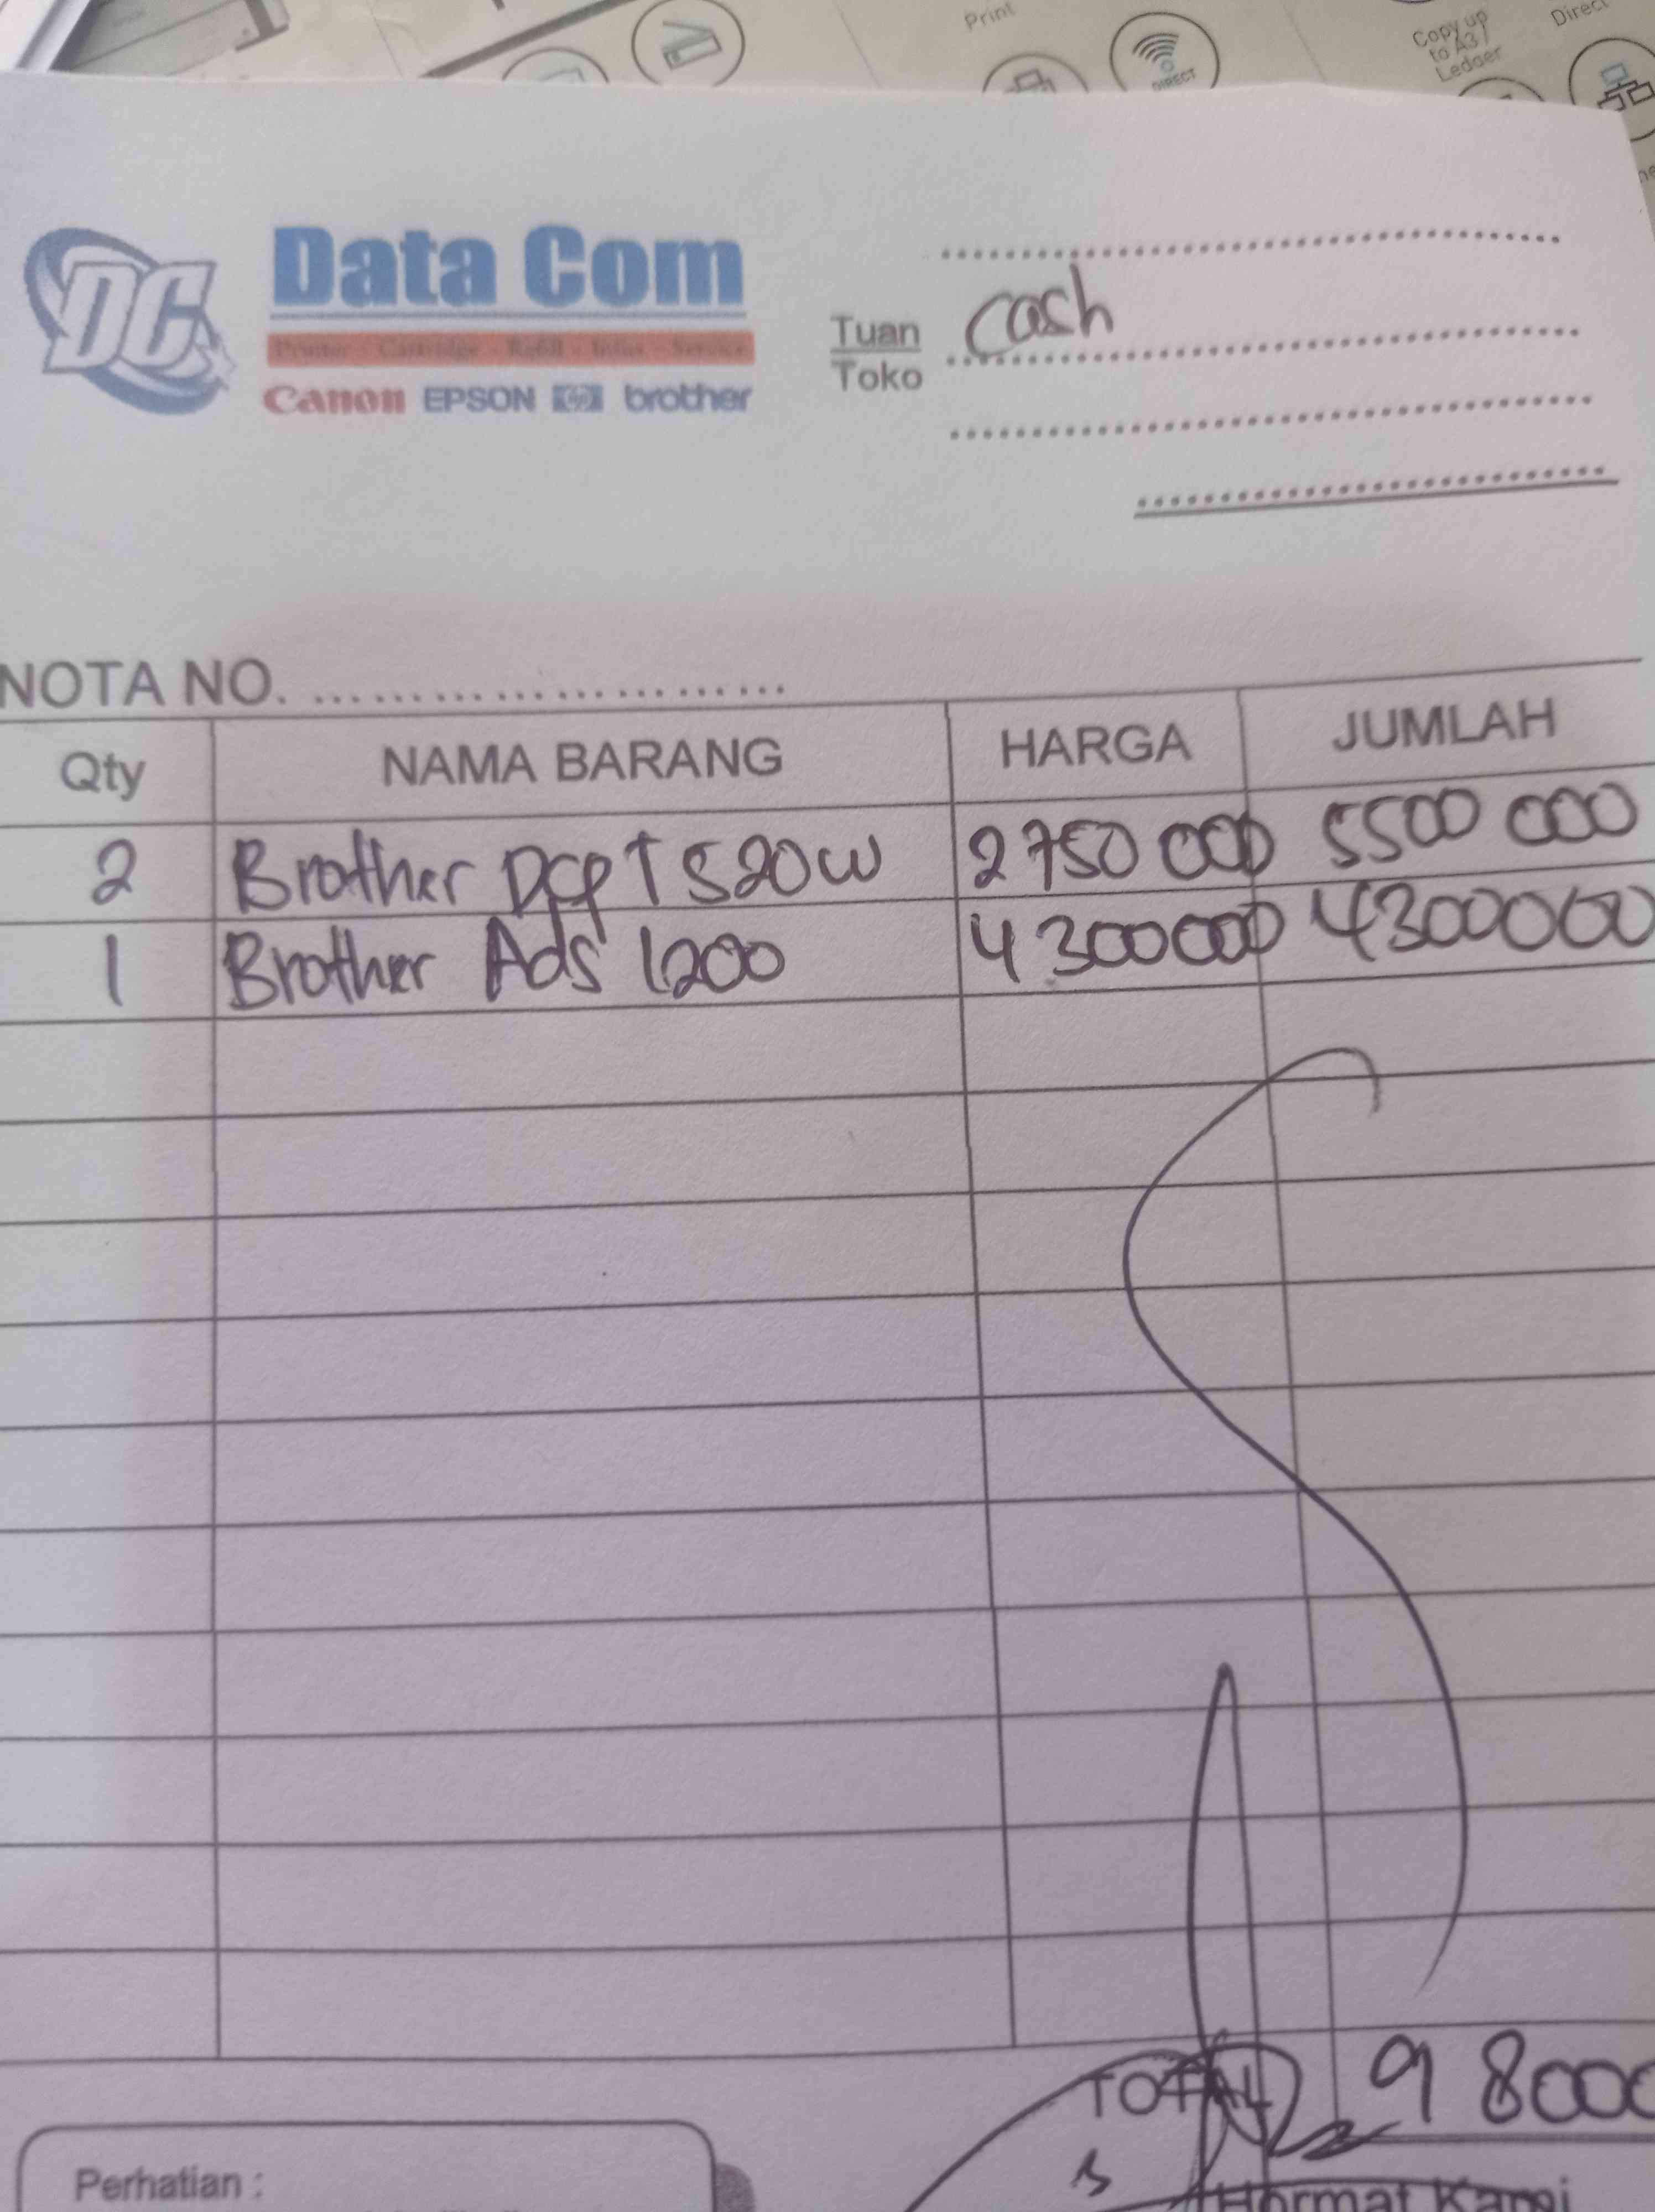 Print
DIRECT
Copy up
to A3 /
Ledger
Direct
DC
Data Com
Printer - Cartridge - Refill - Infus - Service
Canon EPSON hp brother
Tuan
Toko
Cash
NOTA NO. ........................
Qty NAMA BARANG HARGA JUMLAH
2 Brother DCP T 520W 2750 000 5500 000
1 Brother Ads 1200 4 300000 4300000
TOTAL 9 8000
Perhatian :
Hormat Kami